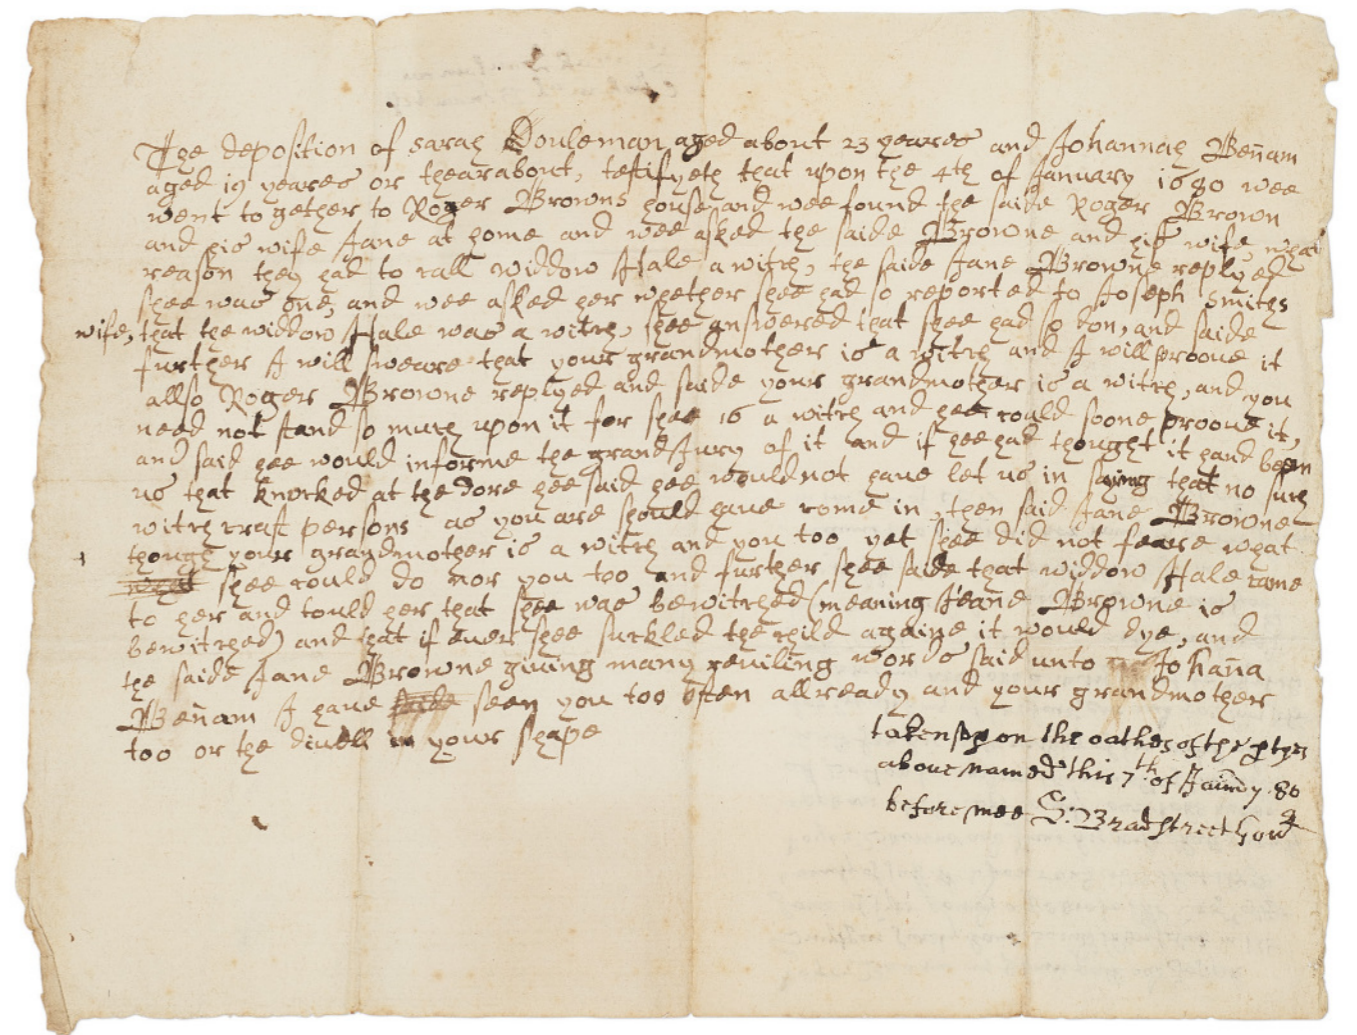 The deposition of Sarah Douleman aged about 23 yeares and Johannah Benam
aged 19 yeares or thearabout, testifyeth that upon the 4th of January 1680 wee
went to gether to Roger Browns house and wee found the saide Roger Brown
and his wife Jane at home and wee asked the saide Browne and his wife, what
reason they had to call widdow Hale a witch, the saide Jane Browne replyed
shee was one, and wee asked her whether shee had so reported to Joseph Smiths
wife, that the widdow Hale was a witch, shee answered that shee had so don, and saide
further I will sweare that your grandmother is a witch and I will proove it
allso Roger Browne replyed and saide your grandmother is a witch, and you
need not stand so much upon it for shee is a witch and hee could soone proove it,
and said hee would informe the grand Jury of it and if hee had thought it hand been
us that knocked at the dore hee said hee would not have let us in saying that no such
witchcraft persons as you are should have come in, then said Jane Browne
though your grandmother is a witch and you too yet shee did not feare what
what shee could do nor you too and further shee saide that widdow Hale came
to her and tould her that shee was bewitched (meaning Jeane Browne is
bewitched) and that if ever shee suckled the child againe it would dye, and
the saide Jane Browne giving many reviling words said unto Johana
Benam I have saide seen you too often allready and your grandmother
too or the divell in your shape
taken upon the oathes of the ptyes
above named this 7th of January 80
before mee S: Bradstreet Govr